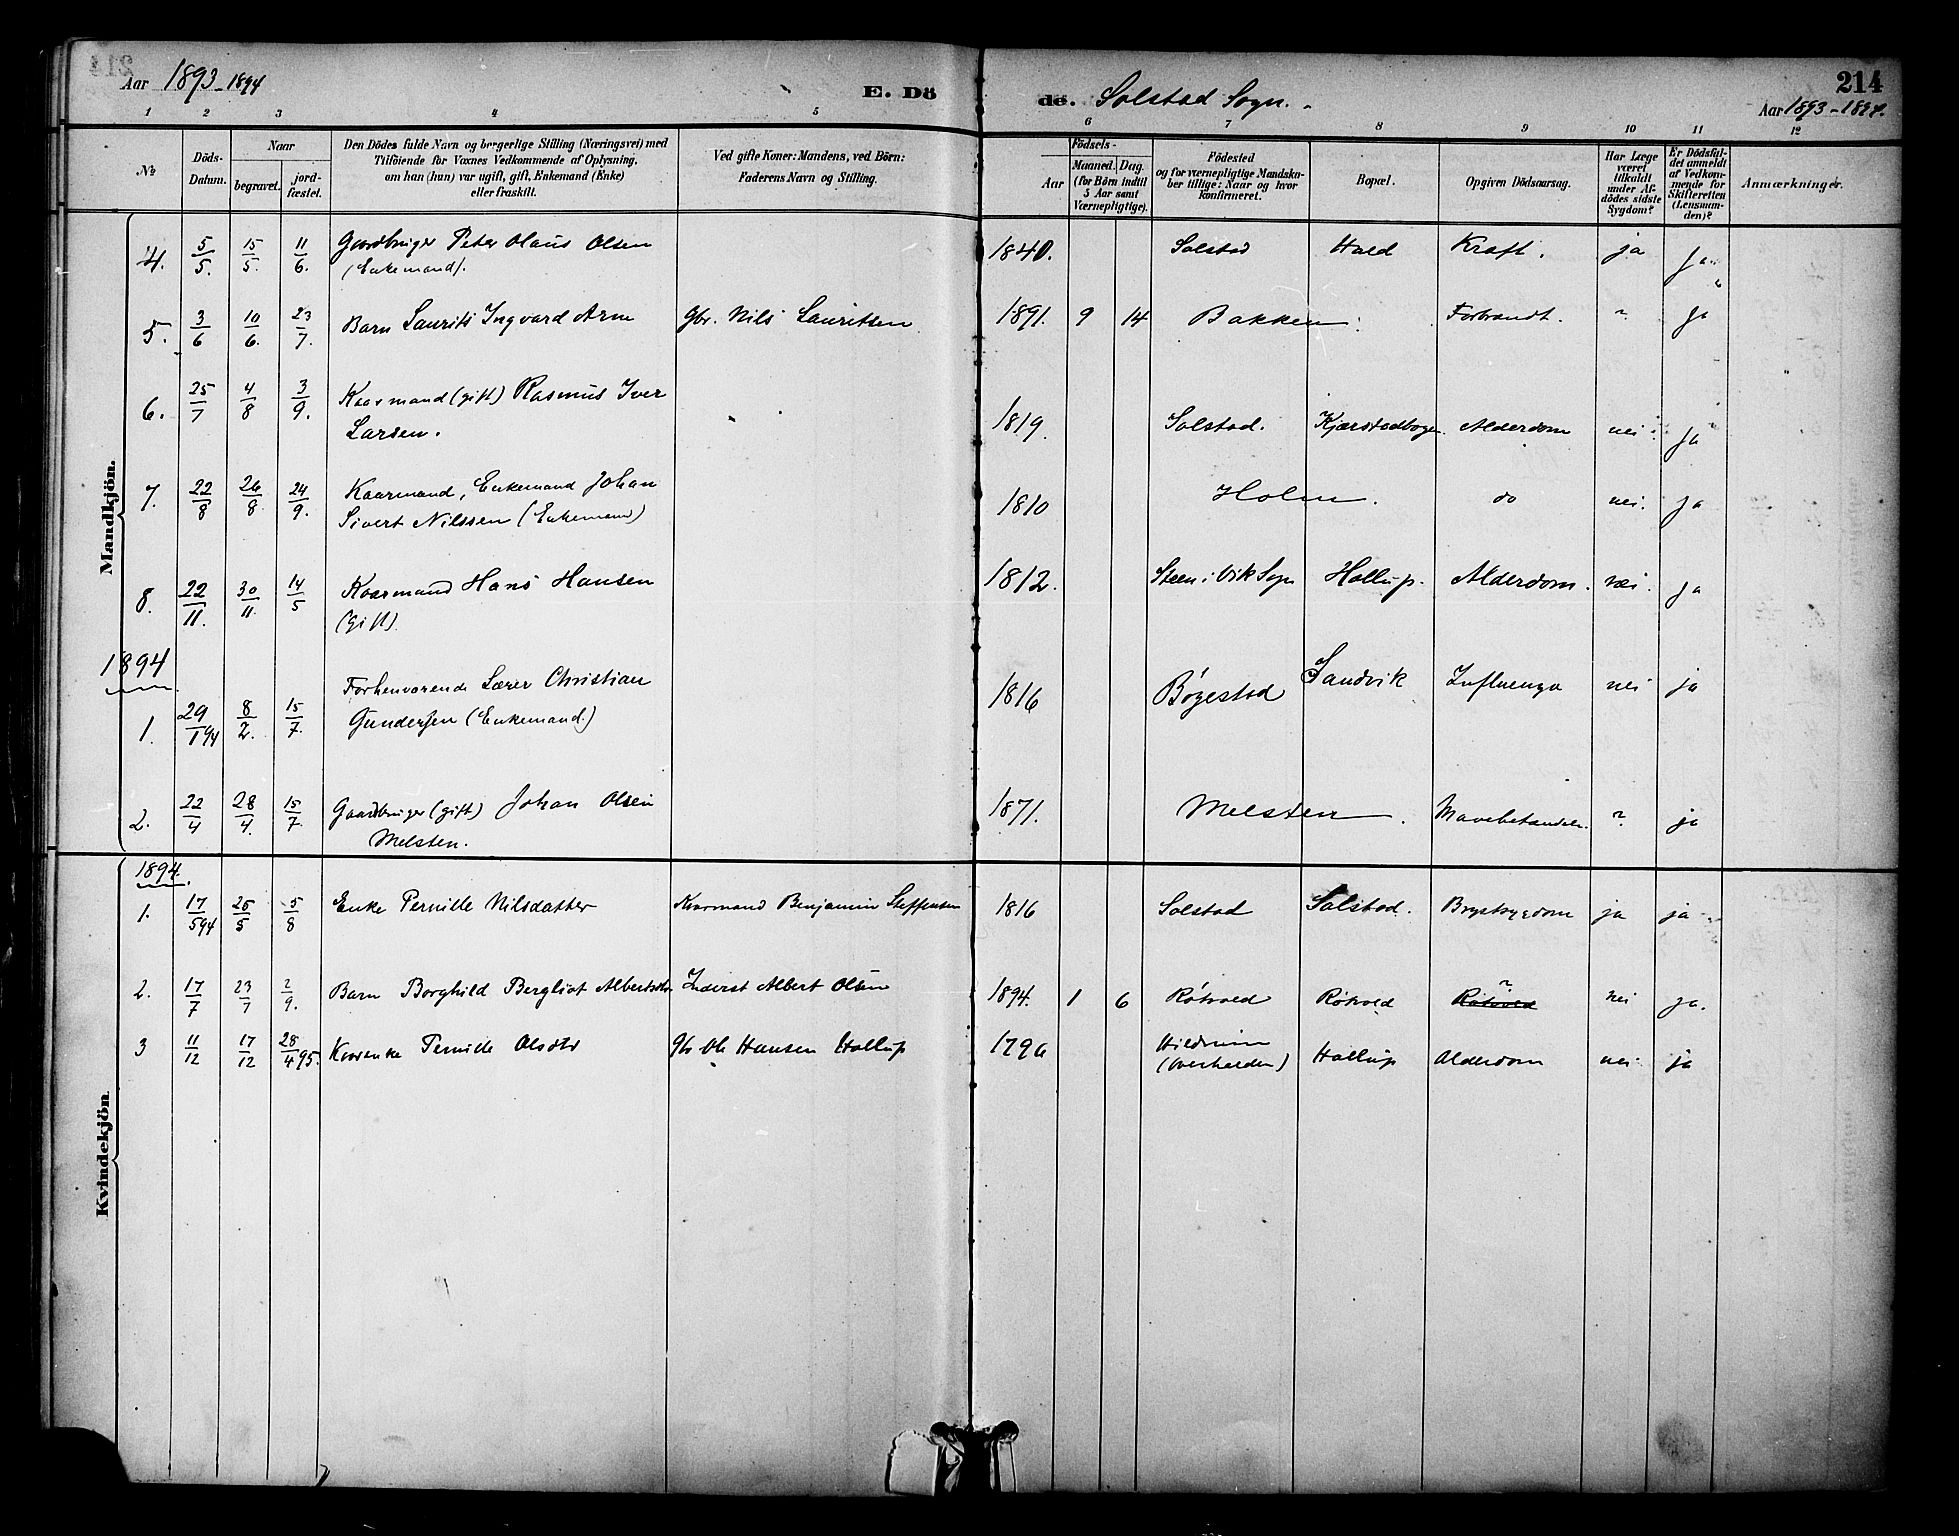 Aar 1893-1894
E. Dö
de. Solstad Sogn.
214
Aar 1893-1894.
1 2 3 4 5 6 7 8 9 10 11 12
No
Döds-Datum.
Naar
begravet.
jord-fæstet.
Den Dödes fulde Navn og borgerlige Stilling (Næringsvei) med
Tilföiende for Voxnes Vedkommende af Oplysning,
om han (hun) var ugift, gift, Enkemand (Enke)
eller fraskilt.
Ved gifte Koner: Mandens, ved Börn:
Faderens Navn og Stilling.
Födsels-
Aar
Maaned. Dag.
(for Börn indtil
5 Aar samt
Værnepligtige).
Födested
og for værnepligtige Mandska-
ber tillige: Naar og hvor
konfirmeret.
Bopæl.
Opgiven Dödsaarsag.
Har Læge
været
tilkaldt
under Af-
dödes sidste
Sygdom?
Er Dödsfal-
det anmeldt
af Vedkom-
mende for
Skifteretten
(Lensman-
den)?
Anmærkninger.
Mandkjön.
4. 5/5. 15/5. 11/6. Gaardbruger Peter Olaus Olsen 1840. Solstad Hald Kræft. ja ja
(Enkemand).
5. 3/6 10/6. 23/7. Barn Laurits Ingvard Arne Gbr. Nils Lauritsen 1891. 9 14 Bakken. Forbrændt. ? ja
6. 25/7 4/8 3/9. Kaarmand (gift) Rasmus Iver 1819. Solstad. Kjærstadbogen. Alderdom nei. ja
Larsen.
7. 22/8 26/8. 24/9. Kaarmand, Enkemand Johan 1810 Holm. do nei. ja
Sivert Nilssen (Enkemand)
8. 22/11. 30/11. 14/5 Kaarmand Hans Hansen 1812. Steen i Vik Sogn Hollup. Alderdom. nei. ja
(gift).
1894
1. 29/1 94 8/2. 15/7. Forhenværende Lærer Christian 1816 Bøgestad Sandvik Influenza nei ja
Gundersen (Enkemand.)
2. 22/4 28/4. 15/7. Gaardbruger (gift) Johan Olsen 1871. Melsten. Mavebetændels. ? ja
Melsten.
Kvindekjön.
1894.
1. 17/5 94 25/5 5/8 Enke Pernille Nilsdatter Kaarmand Benjamin Steffensen 1816 Solstad Solstad. Brystsygdom ja ja
2. 17/7 23/7 2/9. Barn Borghild Bergliot Albertsdtr. Inderst Albert Olsen 1894. 1 6 Røtvold Røtvold Røtvold ? nei ja.
3 11/12 17/12 28/4 95. Kaarenke Pernille Olsdtr Gbr Ole Hansen Hollup 1796 Hildrum Hollup Alderdom nei ja
(Overhalden)